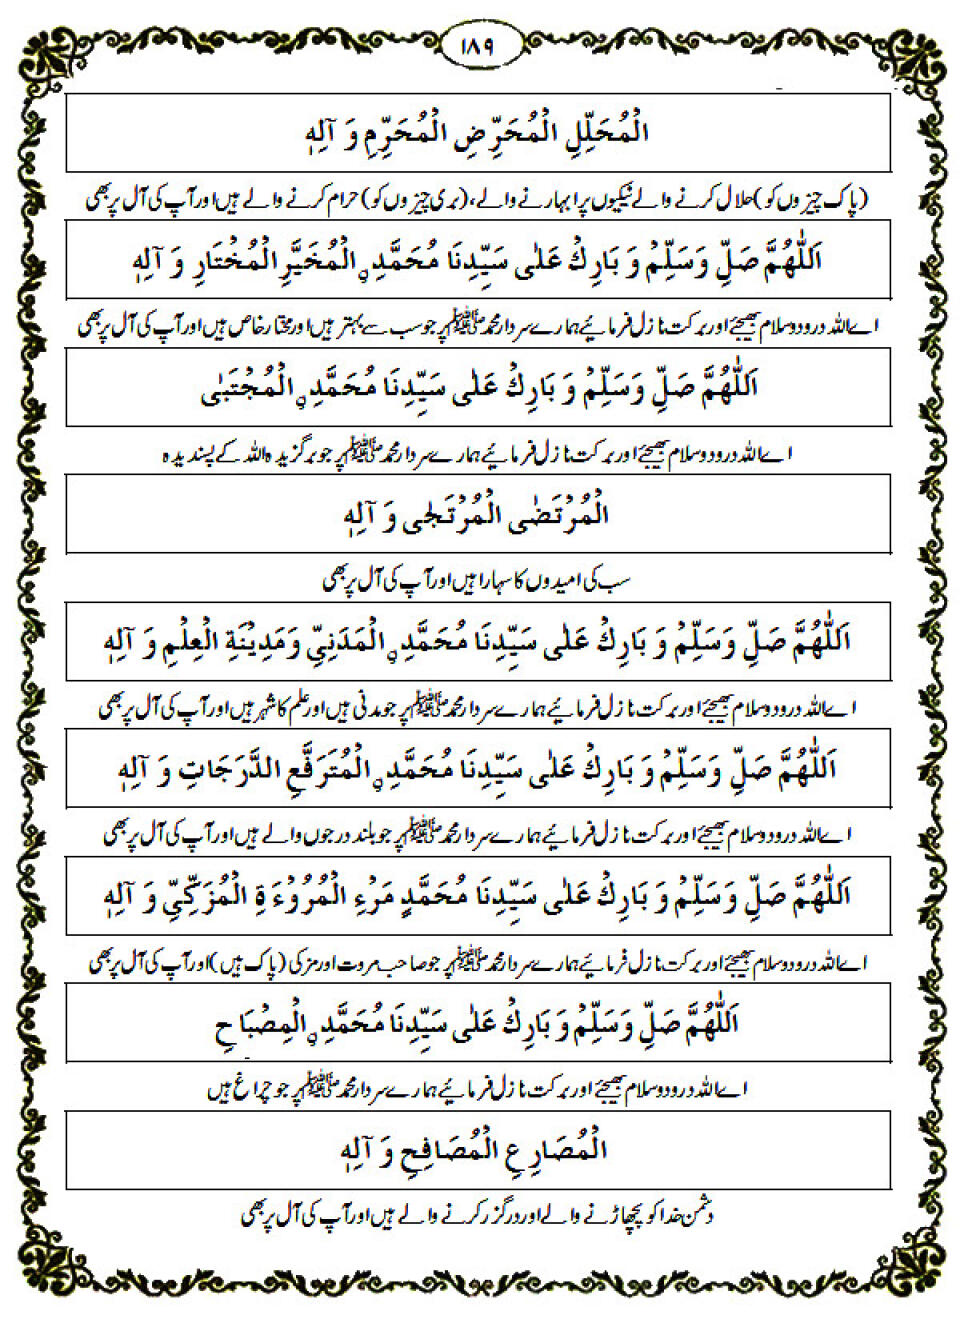 ۱۸۹
الْمُحَلِّلِ الْمُحَرِّضِ الْمُحَرِّمِ وَ آلِهٖ
(پاک چیزوں کو) حلال کرنے والے نیکیوں پر ابھارنے والے، (بری چیزوں کو) حرام کرنے والے ہیں اور آپ کی آل پر بھی
اَللّٰهُمَّ صَلِّ وَسَلِّمْ وَ بَارِكْ عَلٰى سَيِّدِنَا مُحَمَّدِ ِۨالْمُخَيَّرِ الْمُخْتَارِ وَ آلِهٖ
اے اللہ درود و سلام بھیجئے اور برکت نازل فرمائیے ہمارے سردار محمد ﷺ پر جو سب سے بہتر ہیں اور مختار خاص ہیں اور آپ کی آل پر بھی
اَللّٰهُمَّ صَلِّ وَسَلِّمْ وَ بَارِكْ عَلٰى سَيِّدِنَا مُحَمَّدِ ِۨالْمُجْتَبٰى
اے اللہ درود و سلام بھیجئے اور برکت نازل فرمائیے ہمارے سردار محمد ﷺ پر جو برگزیدہ اللہ کے پسندیدہ
الْمُرْتَضٰى الْمُرْتَجٰى وَ آلِهٖ
سب کی امیدوں کا سہارا ہیں اور آپ کی آل پر بھی
اَللّٰهُمَّ صَلِّ وَسَلِّمْ وَ بَارِكْ عَلٰى سَيِّدِنَا مُحَمَّدِ ِۨالْمَدَنِيِّ وَمَدِيْنَةِ الْعِلْمِ وَ آلِهٖ
اے اللہ درود و سلام بھیجئے اور برکت نازل فرمائیے ہمارے سردار محمد ﷺ پر جو مدنی ہیں اور علم کا شہر ہیں اور آپ کی آل پر بھی
اَللّٰهُمَّ صَلِّ وَسَلِّمْ وَ بَارِكْ عَلٰى سَيِّدِنَا مُحَمَّدِ ِۨالْمُتَرَفَّعِ الدَّرَجَاتِ وَ آلِهٖ
اے اللہ درود و سلام بھیجئے اور برکت نازل فرمائیے ہمارے سردار محمد ﷺ پر جو بلند درجوں والے ہیں اور آپ کی آل پر بھی
اَللّٰهُمَّ صَلِّ وَسَلِّمْ وَ بَارِكْ عَلٰى سَيِّدِنَا مُحَمَّدٍ مَرْءِ الْمُرُوْءَةِ الْمُزَكِّيِّ وَ آلِهٖ
اے اللہ درود و سلام بھیجئے اور برکت نازل فرمائیے ہمارے سردار محمد ﷺ پر جو صاحب مروت اور مزکی (پاک ہیں) اور آپ کی آل پر بھی
اَللّٰهُمَّ صَلِّ وَسَلِّمْ وَ بَارِكْ عَلٰى سَيِّدِنَا مُحَمَّدِ ِۨالْمِصْبَاحِ
اے اللہ درود و سلام بھیجئے اور برکت نازل فرمائیے ہمارے سردار محمد ﷺ پر جو چراغ ہیں
الْمُصَارِعِ الْمُصَافِحِ وَ آلِهٖ
دشمن خدا کو پچھاڑنے والے اور درگزر کرنے والے ہیں اور آپ کی آل پر بھی